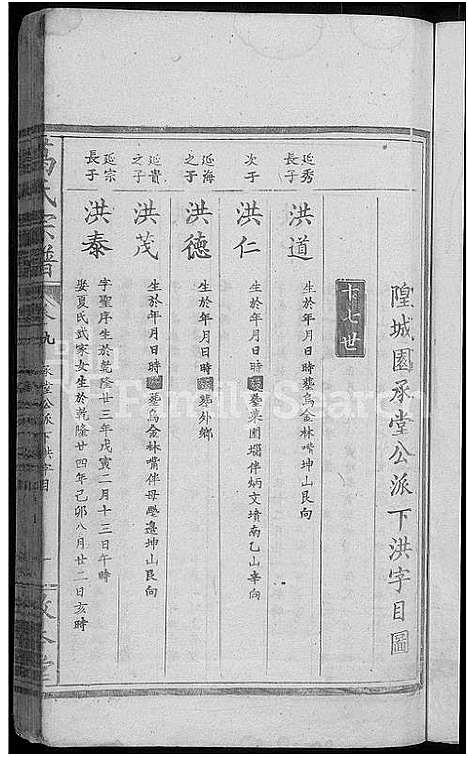 隍城園承堂公派下洪字目圖
十七世
延秀
長子
洪道
生於年月日時葬烏金林嘴坤山艮向
次子
洪仁
生於年月日時葬菜園堖伴炳文墳南乙山辛向
延海
之子
洪德
生於年月日時葬外鄉
延貴
之子
洪茂
生於年月日時葬烏金林嘴伴母塋邉坤山艮向
延宗
長子
洪泰
字聖序生於乾隆廿三年戊寅二月十三日午時
娶夏氏武家女生於乾隆廿四年己卯八月廿二日亥時
萬氏宗譜
卷九
承堂公派下洪字目
FamilySearch